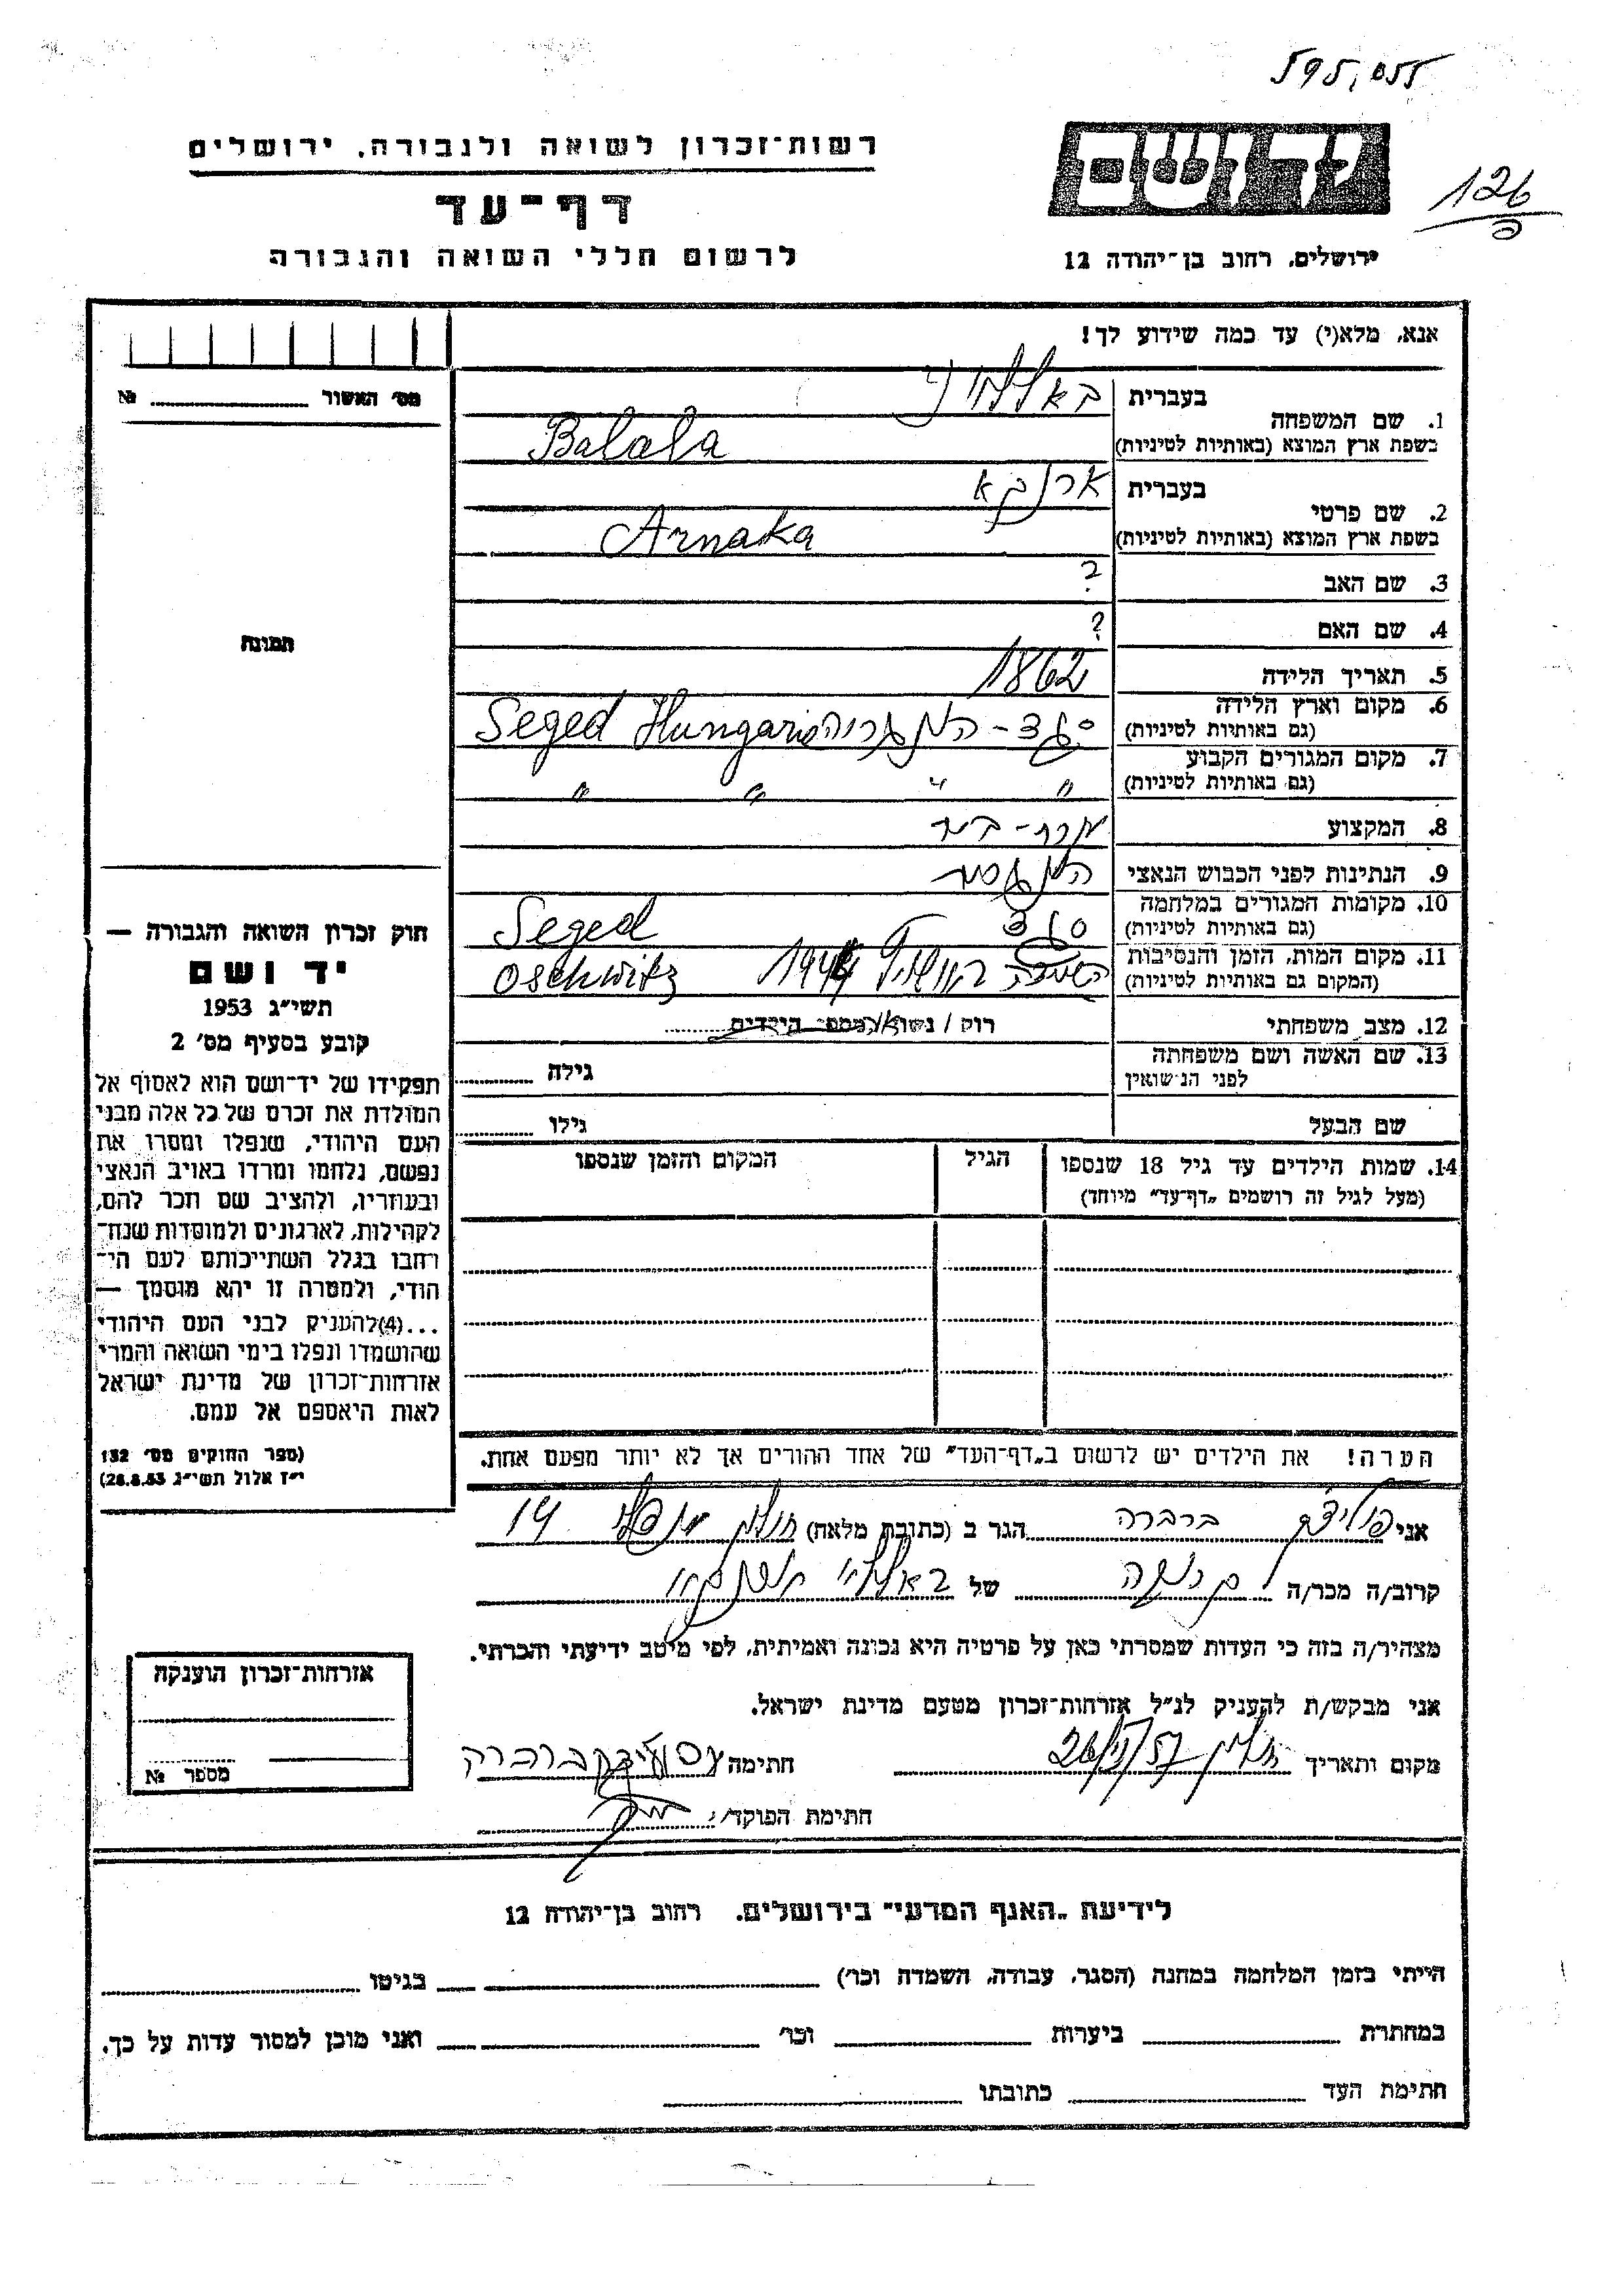 595,055
126
רשות־זכרון לשואה ולגבורה, ירושלים
דף־עד
לרשום חללי השואה והגבורה
יד ושם
ירושלים, רחוב בן־יהודה 12
אנא, מלא(י) עד כמה שידוע לך!
מס' האשור №
תמונה
1. שם המשפחה
בעברית
בשפת ארץ המוצא (באותיות לטיניות) Balala
2. שם פרטי
בעברית
בשפת ארץ המוצא (באותיות לטיניות) Arnaka
3. שם האב ?
4. שם האם ?
5. תאריך הלידה 1862
6. מקום וארץ הלידה
(גם באותיות לטיניות) סגד - הונגריה Seged Hungaria
7. מקום המגורים הקבוע
(גם באותיות לטיניות) " " " "
8. המקצוע
9. הנתינות לפני הכבוש הנאצי
10. מקומות המגורים במלחמה
(גם באותיות לטיניות) סגד Seged
11. מקום המות, הזמן והנסיבות
(המקום גם באותיות לטיניות) 1944 Oschwitz
12. מצב משפחתי רוק / נשוי/אה מספר הילדים
13. שם האשה ושם משפחתה
לפני הנישואין גילה
שם הבעל גילו
14. שמות הילדים עד גיל 18 שנספו
(מעל לגיל זה רושמים „דף־עד” מיוחד)
הגיל
המקום והזמן שנספו
חוק זכרון השואה והגבורה —
יד ושם
תשי״ג 1953
קובע בסעיף מס' 2
תפקידו של יד־ושם הוא לאסוף אל
המולדת את זכרם של כל אלה מבני
העם היהודי, שנפלו ומסרו את
נפשם, נלחמו ומרדו באויב הנאצי
ובעוזריו, ולהציב שם וזכר להם,
לקהילות, לארגונים ולמוסדות שנח־
רבו בגלל השתייכותם לעם הי־
הודי, ולמטרה זו יהא מוסמך —
...(4)להעניק לבני העם היהודי
שהושמדו ונפלו בימי השואה והמרי
אזרחות־זכרון של מדינת ישראל
לאות היאספם אל עמם.
(ספר החוקים מס' 132
י״ז אלול תשי״ג 28.8.53)
הערה! את הילדים יש לרשום ב„דף־העד” של אחד ההורים אך לא יותר מפעם אחת.
אני ברברה הגר ב (כתובת מלאה) 14
קרוב/ה מכר/ה של
מצהיר/ה בזה כי העדות שמסרתי כאן על פרטיה היא נכונה ואמיתית, לפי מיטב ידיעתי והכרתי.
אני מבקש/ת להעניק לנ״ל אזרחות־זכרון מטעם מדינת ישראל.
מקום ותאריך חתימה ברברה
חתימת הפוקד/ת
אזרחות־זכרון הוענקה
מספר №
לידיעת „האגף המדעי” בירושלים, רחוב בן־יהודה 12
הייתי בזמן המלחמה במחנה (הסגר, עבודה, השמדה וכו') בגיטו
במחתרת ביערות וכו' ואני מוכן למסור עדות על כך.
חתימת העד כתובתו